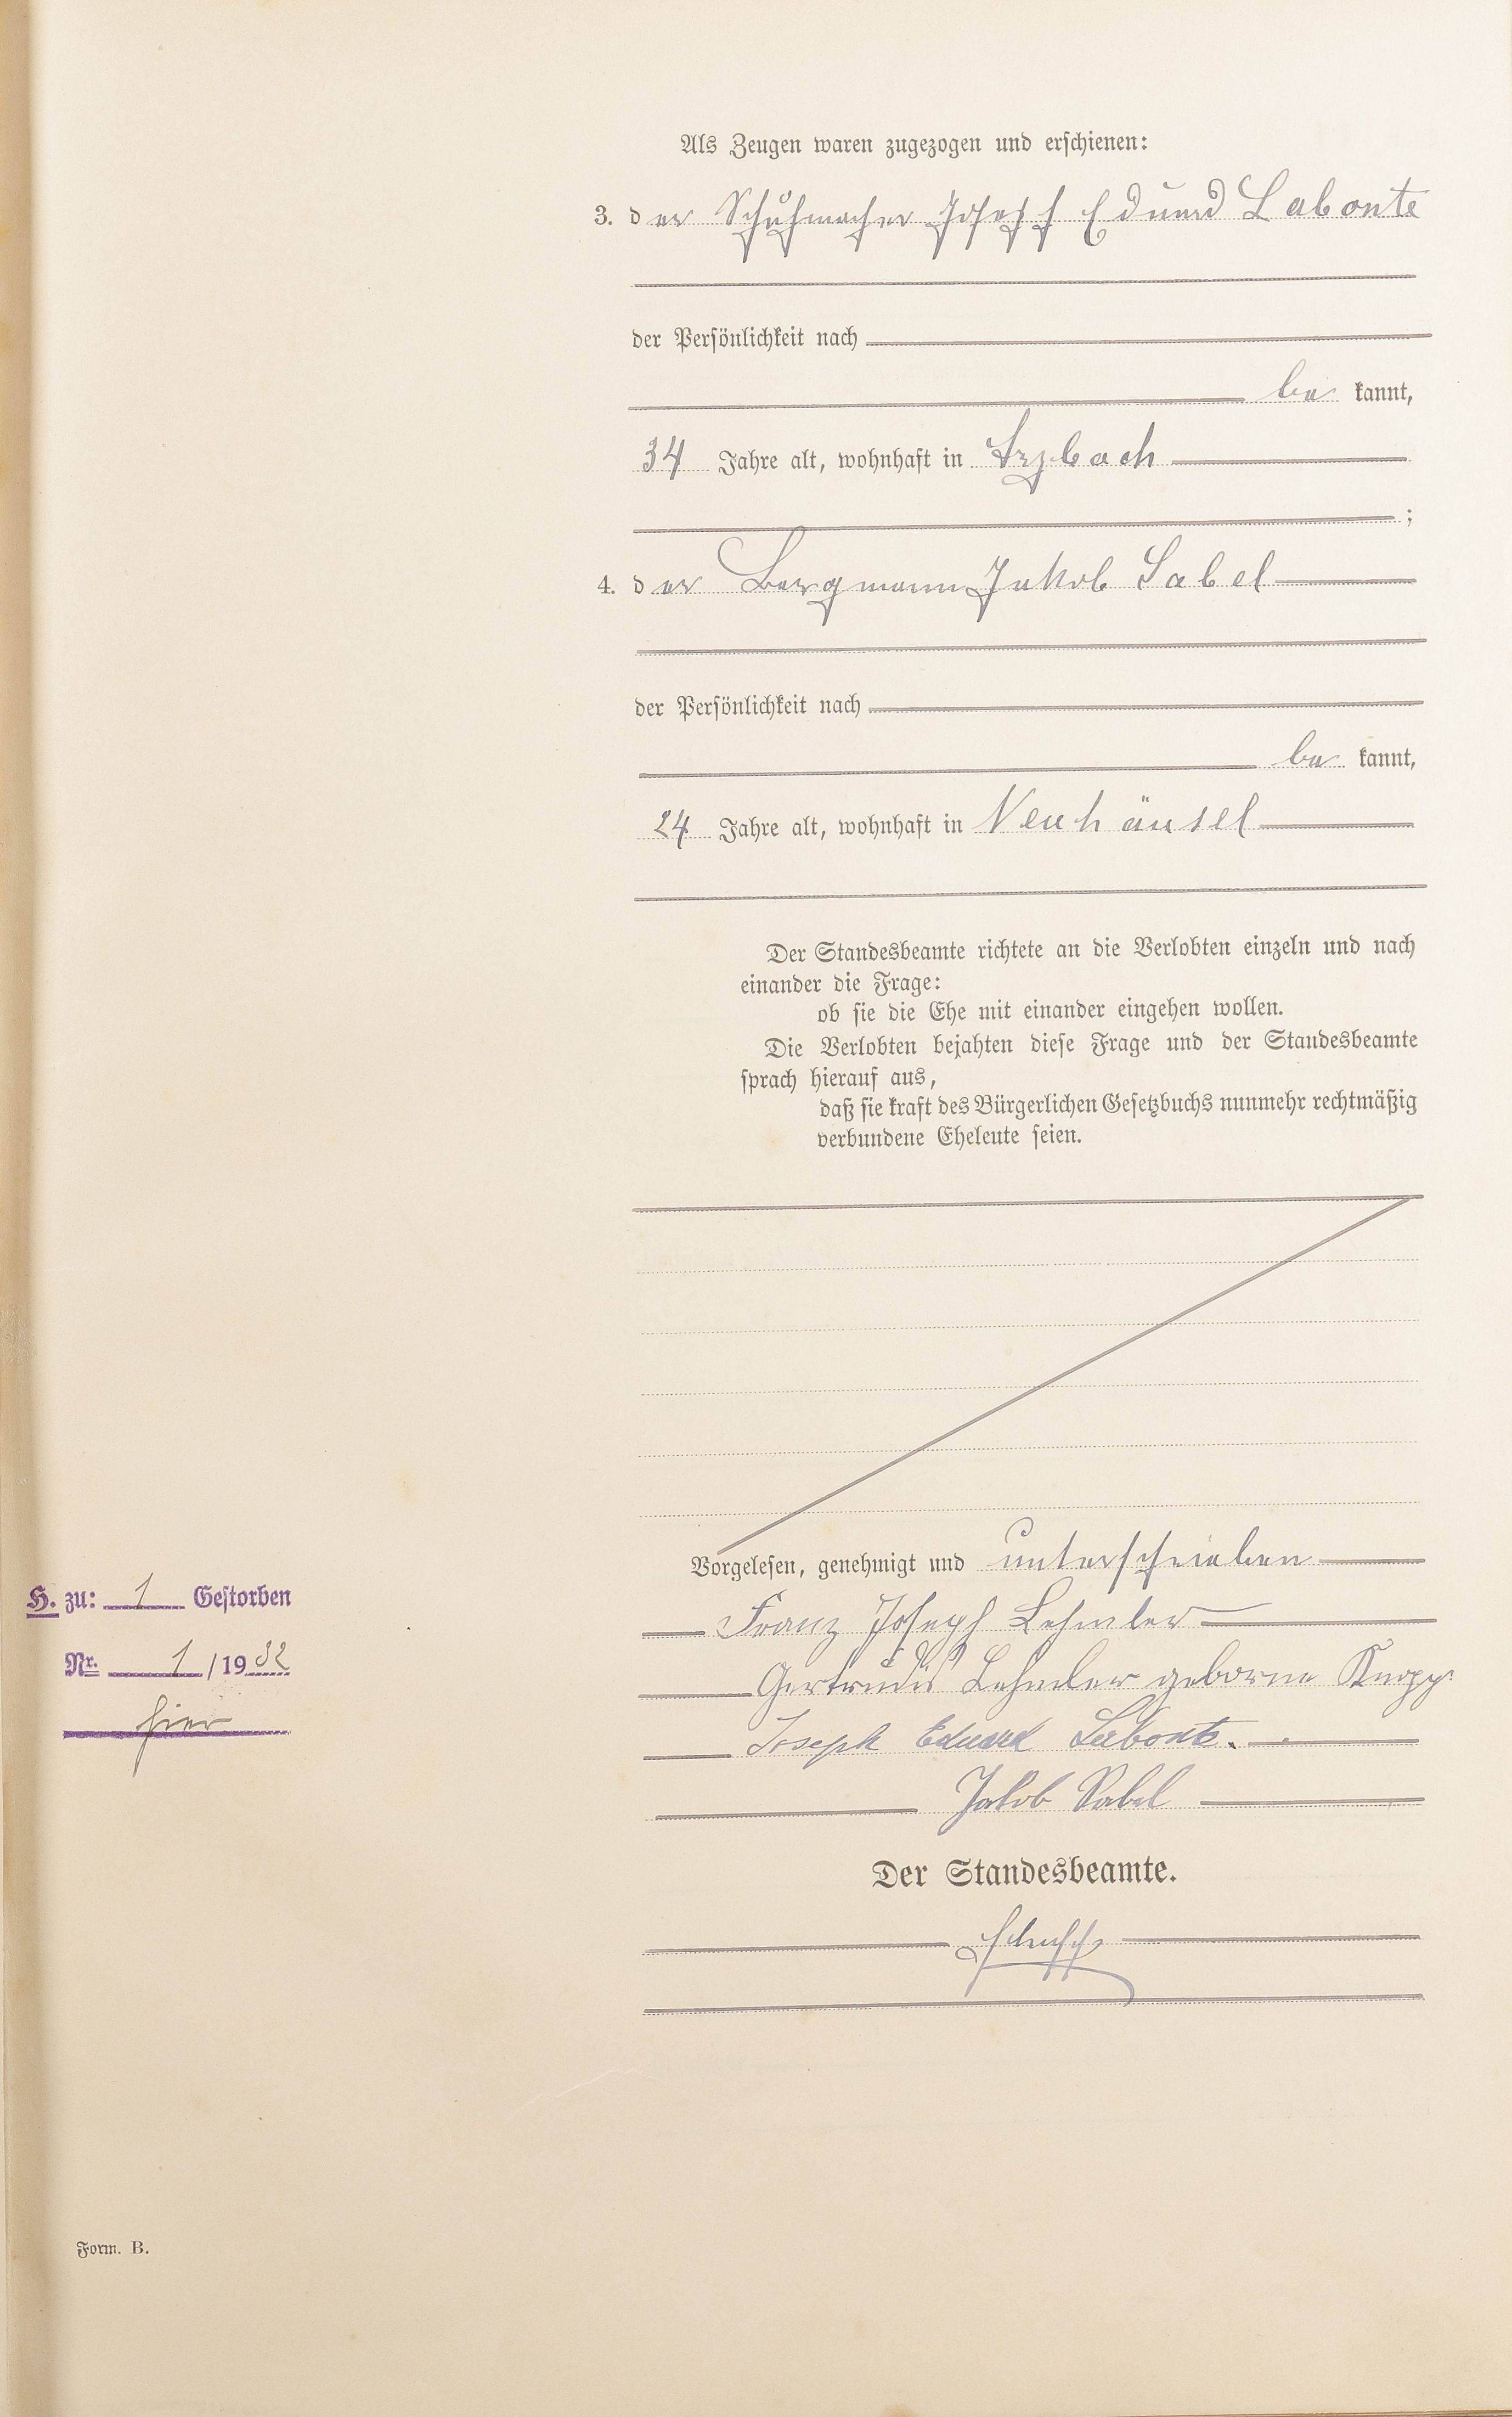 Als Zeugen waren zugezogen und erschienen:
3. der Schuhmacher Joseph Eduard Labonte
der Persönlichkeit nach
be kannt,
34 Jahre alt, wohnhaft in Arzbach
;
4. der Bergmann Jakob Sabel
der Persönlichkeit nach
be kannt,
24 Jahre alt, wohnhaft in Neuhäusel
Der Standesbeamte richtete an die Verlobten einzeln und nach
einander die Frage:
ob sie die Ehe mit einander eingehen wollen.
Die Verlobten bejahten diese Frage und der Standesbeamte
sprach hierauf aus,
daß sie kraft des Bürgerlichen Gesetzbuchs nunmehr rechtmäßig
verbundene Eheleute seien.
Vorgelesen, genehmigt und unterschrieben
Franz Joseph Lehmler
Gertrudis Lehmler geborne Knopp
Joseph Eduard Labonte.
Jakob Sabel
Der Standesbeamte.
H. zu: 1 Gestorben
Nr. 1 / 1932
hier
Form. B.